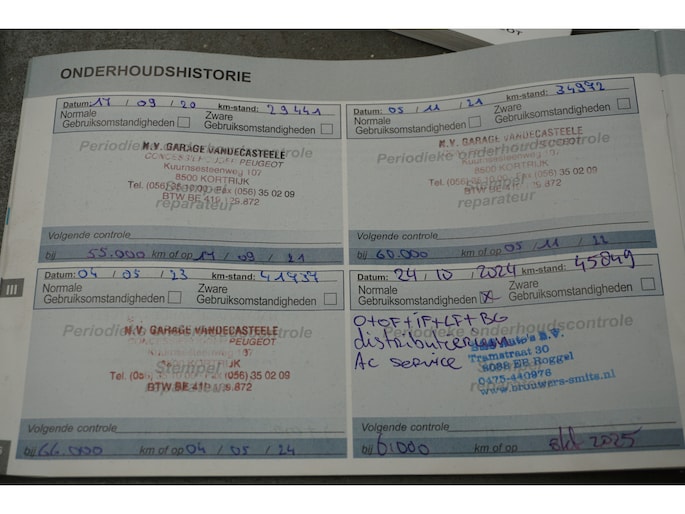 ONDERHOUDSHISTORIE
Datum: 17 / 09 / 20 km-stand: 29441
Normale Gebruiksomstandigheden
Zware Gebruiksomstandigheden
Periodieke onderhoudscontrole
N.V. GARAGE VANDECASTEELE
PEUGEOT
Kuurnsesteenweg 107
8500 KORTRIJK
Tel. (056) 35 02 09
BTW BE 419 .872
Stempel
reparateur
Volgende controle
bij 55.000 km of op 17 / 09 / 21
Datum: 05 / 11 / 21 km-stand: 34972
Normale Gebruiksomstandigheden
Zware Gebruiksomstandigheden
Periodieke onderhoudscontrole
N.V. GARAGE VANDECASTEELE
PEUGEOT
Kuurnsesteenweg 107
8500 KORTRIJK
Tel. (056) 35 02 09
BTW BE 419 .872
reparateur
Volgende controle
bij 60.000 km of op 05 / 11 / 22
III
Datum: 04 / 05 / 23 km-stand: 41737
Normale Gebruiksomstandigheden
Zware Gebruiksomstandigheden
Periodieke onderhoudscontrole
N.V. GARAGE VANDECASTEELE
PEUGEOT
107
KORTRIJK
Stempel
Tel. (056) 35 02 09
BTW BE 419 .872
reparateur
Volgende controle
bij 66.000 km of op 04 / 05 / 24
Datum: 24 / 10 / 2024 km-stand: 45849
Normale Gebruiksomstandigheden X
Zware Gebruiksomstandigheden
O+OF+iF+LF+BG
Periodieke onderhoudscontrole
distributieriem
B.V.
AC service
Tramstraat 30
6088 EE Roggel
0475-440976
www.brouwers-smits.nl
reparateur
Volgende controle
bij 61000 km of op okt 2025